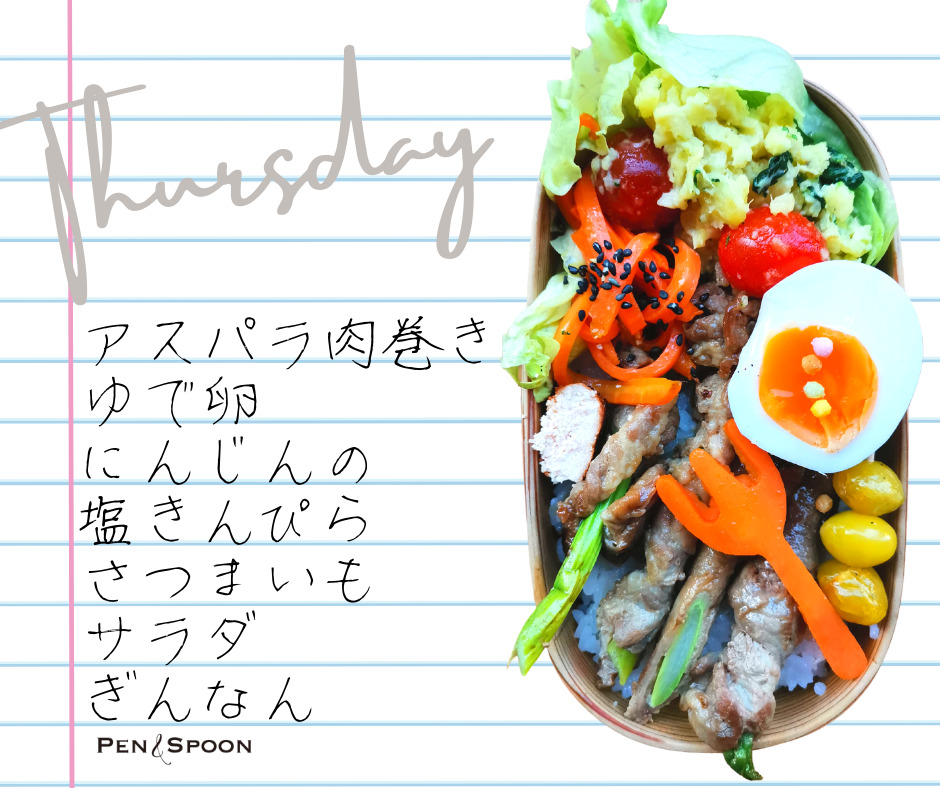 Thursday
アスパラ肉巻き
ゆで卵
にんじんの
塩きんぴら
さつまいも
サラダ
ぎんなん
PEN&SPOON